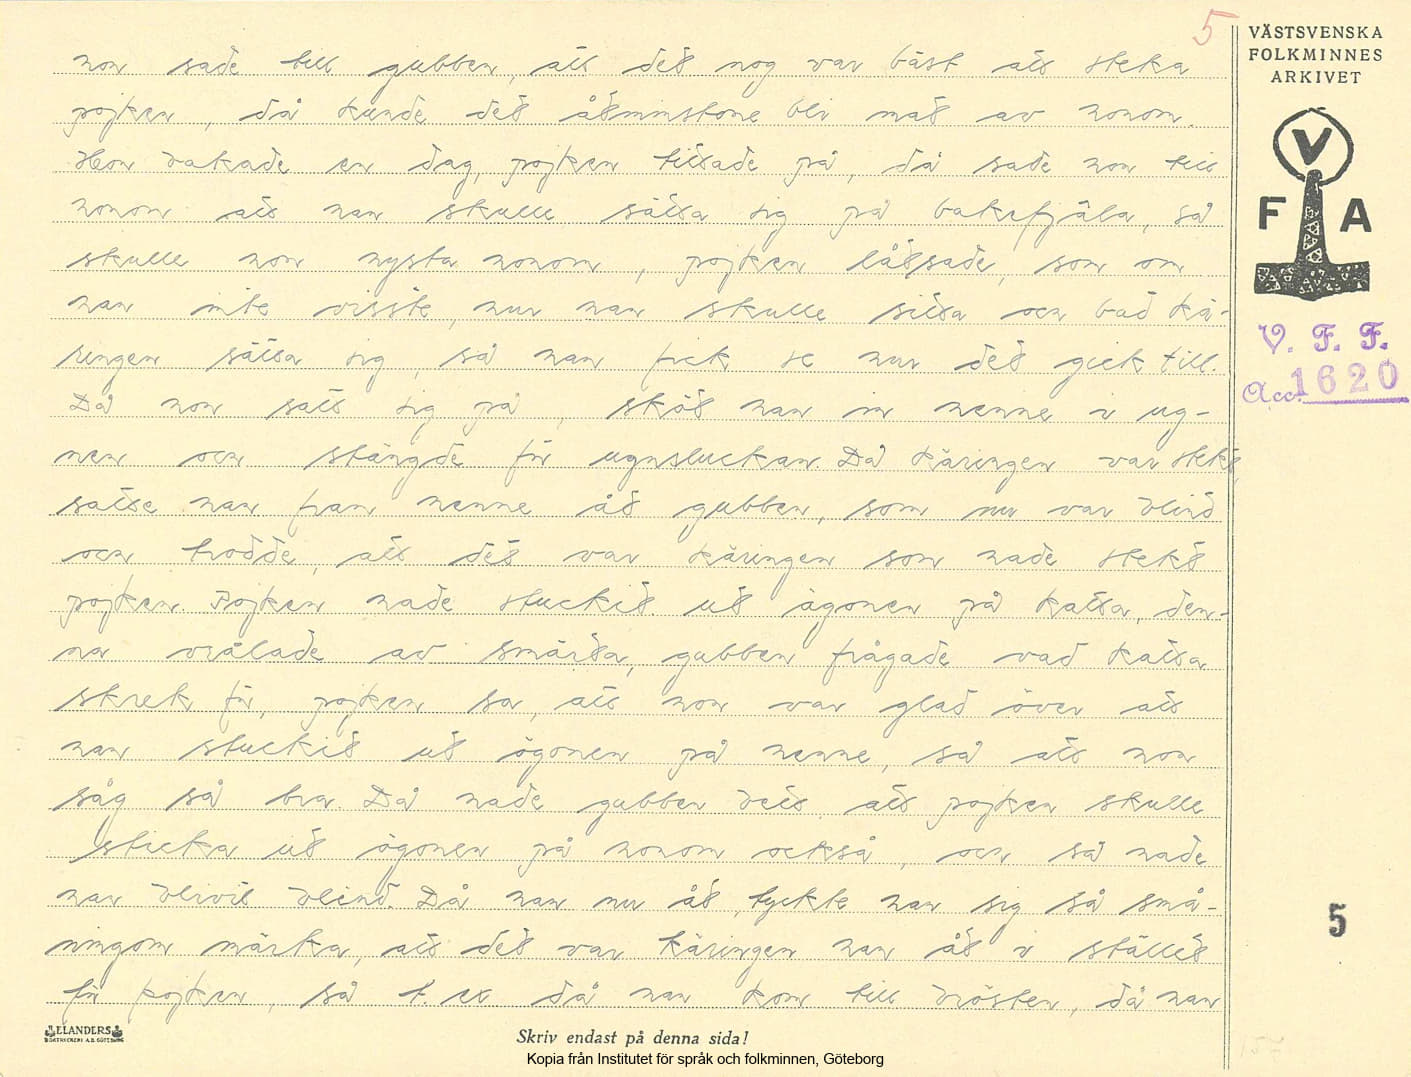 5
VÄSTSVENSKA
FOLKMINNES
ARKIVET
V
F A
V. F. F.
Acc. 1620
hon sade till gubben, att det nog var bäst att steka
pojken, då kunde det åtminstone bli mat av honom.
Hon bakade en dag, pojken tittade på, då sade hon till
honom att han skulle sätta sig på bakefjäla, så
skulle hon nysta honom, pojken låtsade, som om
han inte visste, hur han skulle sitta och bad kä-
ringen sätta sig, så han fick se hur det gick till.
Då hon satt sig på, sköt han in henne i ug-
nen och stängde för ugnsluckan. Då käringen var stekt,
satte han fram henne åt gubben, som nu var blind
och trodde, att det var käringen som hade stekt
pojken. Pojken hade stuckit ut ögonen på katta, den-
na vrålade av smärta, gubben frågade vad katta
skrek för, pojken sa, att hon var glad över att
han stuckit ut ögonen på henne, så att hon
såg så bra. Då hade gubben bett att pojken skulle
sticka ut ögonen på honom också, och så hade
han blivit blind. Då han nu åt, tyckte han sig så små-
ningom märka, att det var käringen han åt i stället
för pojken, så t. ex då han kom till brösten, då han
5
ELANDERS
BOKTRYCKERI A.B. GÖTEBORG
Skriv endast på denna sida!
Kopia från Institutet för språk och folkminnen, Göteborg